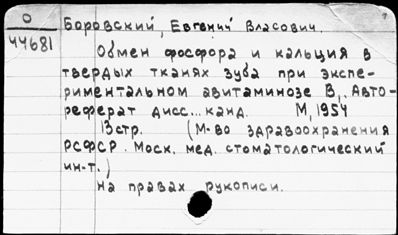 О
44681
Боровский, Евгений Власович.
Обмен фосфора и кальция в
твердых тканях зуба при экспе-
риментальном авитаминозе В₁. Авто-
реферат дисс... канд. М, 1954
13 стр. (М-во здравоохранения
РСФСР. Моск. мед. стоматологический
ин-т.)
на правах рукописи.